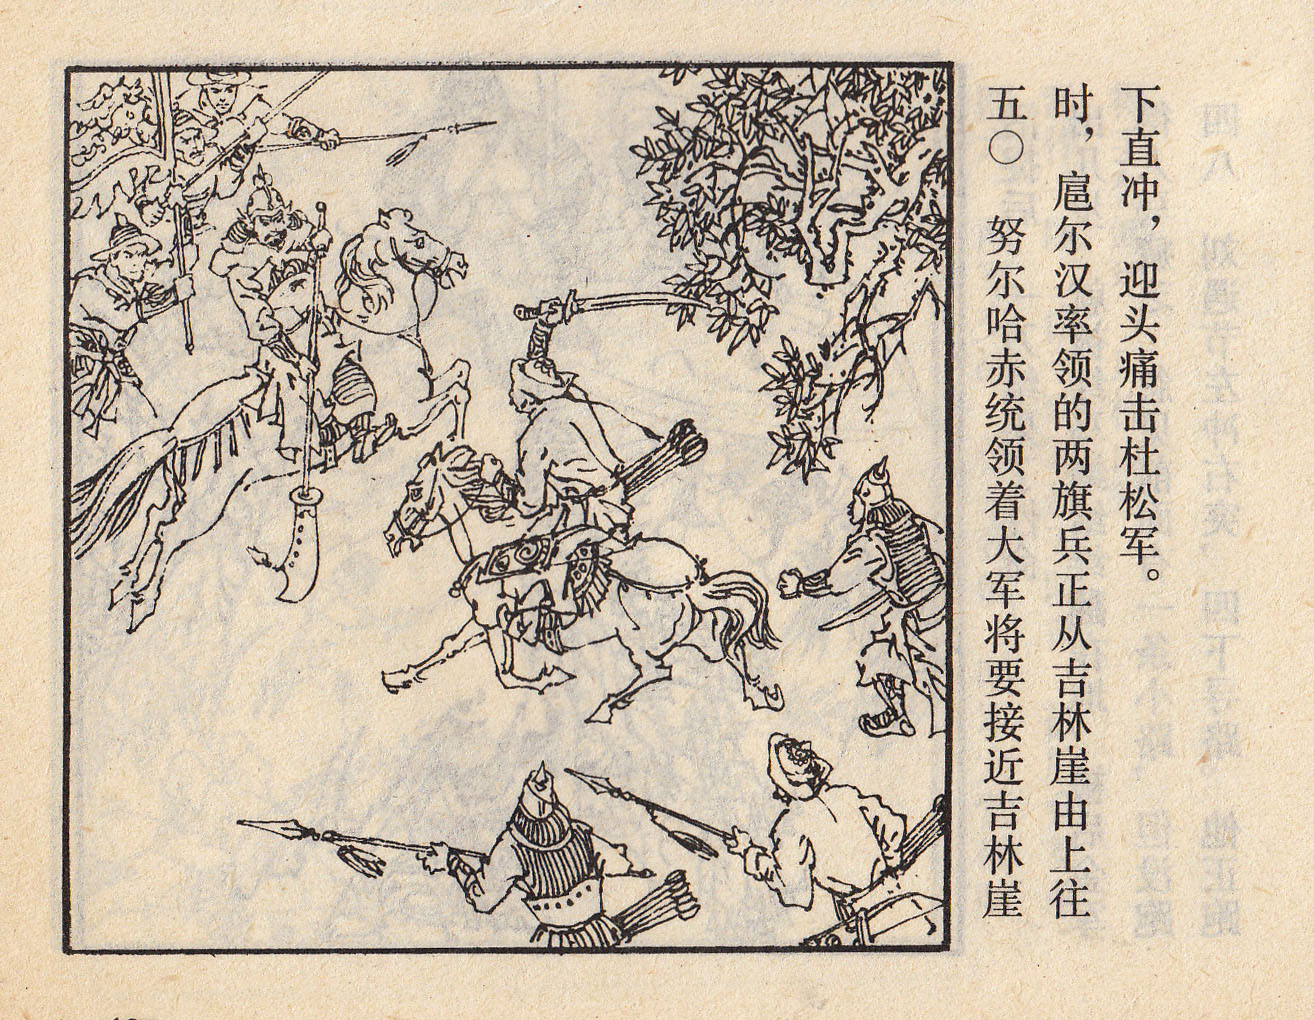 五〇 努尔哈赤统领着大军将要接近吉林崖
时，扈尔汉率领的两旗兵正从吉林崖由上往
下直冲，迎头痛击杜松军。